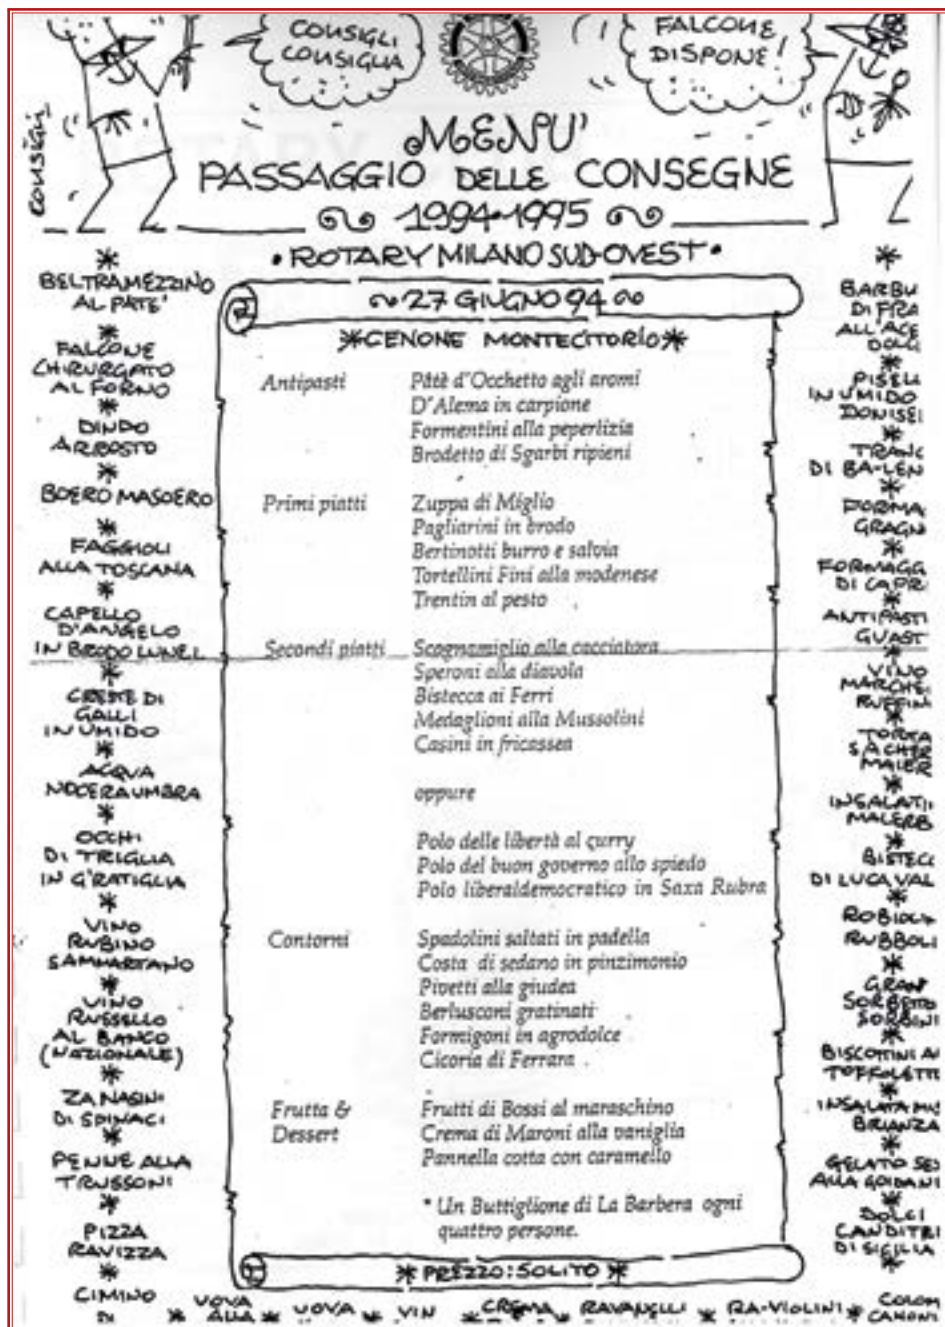 CONSIGLI
CONSIGLIA
FALCONE
DISPONE!
CONSIGLI
MENU'
PASSAGGIO DELLE CONSEGNE
1994-1995
• ROTARY MILANO SUD-OVEST •
27 GIUGNO 94
*CENONE MONTECITORIO*
Antipasti Pâtè d'Occhetto agli aromi
D'Alema in carpione
Formentini alla peperlizia
Brodetto di Sgarbi ripieni
Primi piatti Zuppa di Miglio
Pagliarini in brodo
Bertinotti burro e salvia
Tortellini Fini alla modenese
Trentin al pesto
Secondi piatti Scognamiglio alla cacciatora
Speroni alla diavola
Bistecca ai Ferri
Medaglioni alla Mussolini
Casini in fricassea
oppure
Polo delle libertà al curry
Polo del buon governo allo spiedo
Polo liberaldemocratico in Saxa Rubra
Contorni Spadolini saltati in padella
Costa di sedano in pinzimonio
Pivetti alla giudea
Berlusconi gratinati
Formigoni in agrodolce
Cicoria di Ferrara
Frutta & Frutti di Bossi al maraschino
Dessert Crema di Maroni alla vaniglia
Pannella cotta con caramello
* Un Buttiglione di La Barbera ogni
quattro persone.
* PREZZO: SOLITO *
*
BELTRAMEZZINO
AL PATE'
*
FALCONE
CHIRURGATO
AL FORNO
*
DINDO
ARBOSTO
*
BOERO MASOERO
*
FAGGIOLI
ALLA TOSCANA
*
CAPELLO
D'ANGELO
IN BRODO LUNEL
*
CRESTE DI
GALLI
IN UMIDO
*
ACQUA
NOCERAUMBRA
*
OCCHI
DI TRIGLIA
IN G'RATIGLIA
*
VINO
RUBINO
SAMMARTANO
*
VINO
RUSSELLO
AL BANCO
(NAZIONALE)
*
ZANASINI
DI SPINACI
*
PENNE ALLA
TRUSSONI
*
PIZZA
RAVIZZA
*
CIMINO
*
BARBU
DI FRA
ALL'ACE
DOLCI
*
PISELL
IN UMIDO
DONISEI
*
TRANC
DI BA-LEN
*
DORMA
GRAGN
*
FORMAGG
DI CAPRI
*
ANTIPASTI
GUAST
*
VINO
MARCHE
RUFFIN
*
TORTA
SACHER
MAIER
*
INSALATI
MALERB
*
BISTECC
DI LUCA VAL
*
ROBIOLA
RUBBOLI
*
GRAN
SORBETTO
SORBINI
*
BISCOTTINI AI
TOFFOLETTI
*
INSALATA MIS
BRIANZA
*
GELATO SES
ALLA GOIDANI
*
DOLCI
CANDITRI
DI SICILIA
*
UOVA * UOVA * VIN * CREMA * RAVANELLI * RA-VIOLINI * COLOM
ALLA CANONI